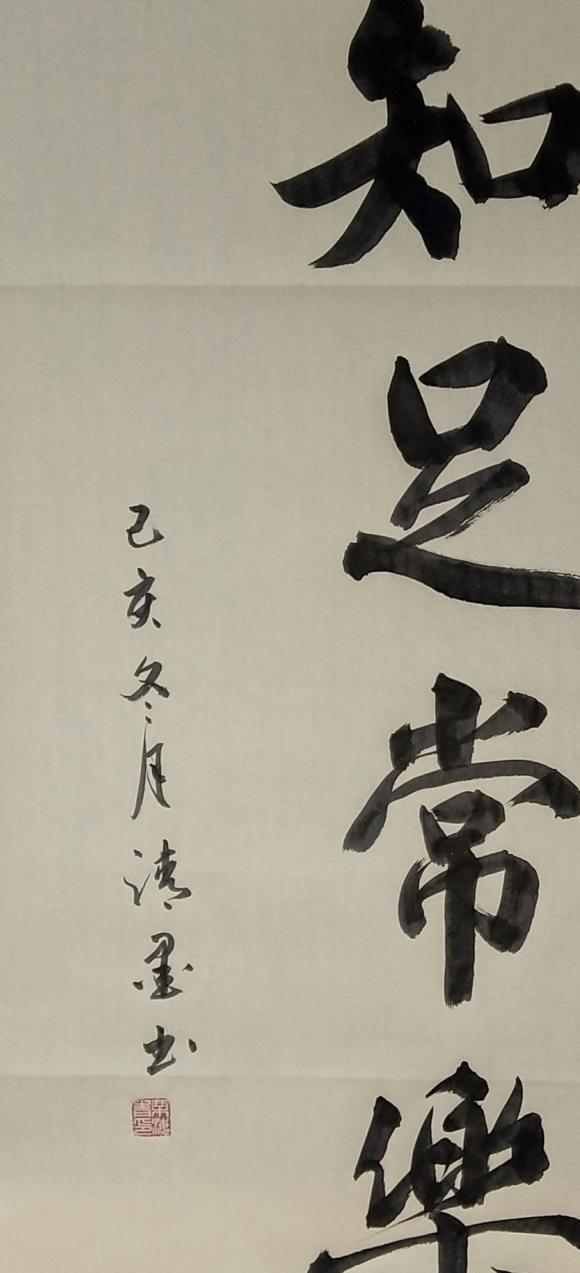 知足常樂
己亥冬月清墨书